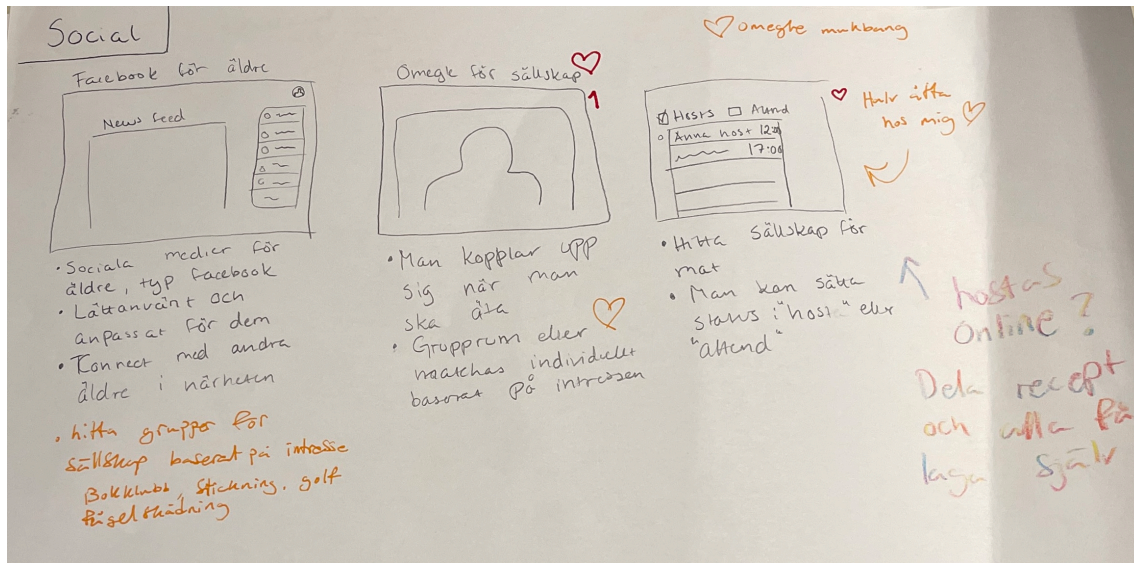 Social
♡ Omegle mukbang
Facebook för äldre
News feed
• Sociala medier för
äldre, typ facebook
• Lättanvänt och
anpassat för dem
• Connect med andra
äldre i närheten
• hitta grupper för
sällskap baserat på intresse
Bokklubb, Stickning, golf
fågelskådning
Omegle för sällskap ♡
1
• Man kopplar upp
sig när man
ska äta
• Grupprum eller ♡
maatchas individuellt
baserat på intressen
♡ Halv åtta
hos mig ♡
Hosts
Anna host 12:00
17:00
• Hitta sällskap för
mat
• Man kan sätta
status i "host" eller
"attend"
hostas
online?
Dela recept
och alla få
laga själv